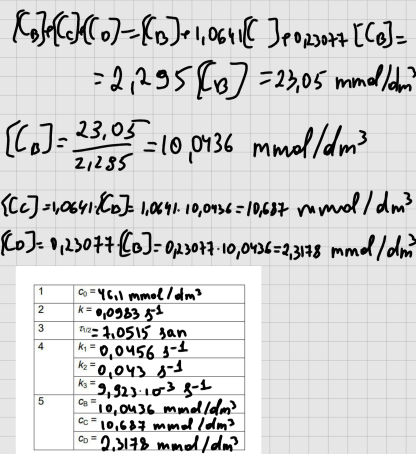 [C_B]+[C_C]+[C_D]=[C_B]+1,0641[C ]+0,23077[C_B]=
=2,295[C_B]=23,05 mmol/dm³
[C_B]=23,05/2,295=10,0436 mmol/dm³
[C_C]=1,0641·[C_B]=1,0641·10,0436=10,687 mmol/dm³
[C_D]=0,23077·[C_B]=0,23077·10,0436=2,3178 mmol/dm³
1 c₀ = 46,1 mmol/dm³
2 k = 0,0983 s⁻¹
3 τ₁/₂ = 7,0515 san
4 k₁ = 0,0456 s⁻¹
k₂ = 0,043 s⁻¹
k₃ = 9,923·10⁻³ s⁻¹
5 c_B = 10,0436 mmol/dm³
c_C = 10,687 mmol/dm³
c_D = 2,3178 mmol/dm³